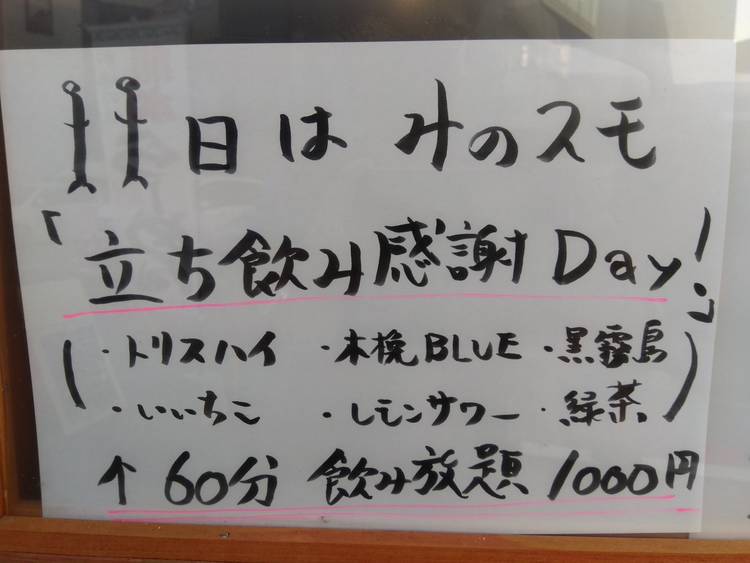 11日は みのスモ
「立ち飲み感謝 Day!」
(・トリスハイ ・木挽BLUE ・黒霧島
・いいちこ ・レモンサワー ・緑茶)
↑ 60分 飲み放題 1000円